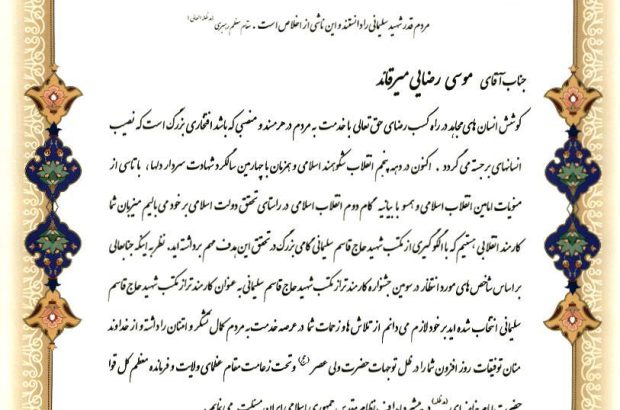 مردم قدر شهید سلیمانی را دانستند و این ناشی از اخلاص است . مقام معظم رهبری (مدظله العالی)
جناب آقای موسی رضایی میرقائد
کوشش انسان های مجاهد در راه کسب رضای حق تعالی با خدمت به مردم در هر مسند و منصبی که باشد افتخاری بزرگ است که نصیب
انسانهای برجسته می گردد . اکنون در دهه پنجم انقلاب شکوهمند اسلامی و همزمان با چهارمین سالگرد شهادت سردار دلها ، با تاسی از
منویات امامین انقلاب اسلامی و همسو با بیانیه گام دوم انقلاب اسلامی در راستای تحقق دولت اسلامی بر خود می بالیم میزبان شما
کارمند انقلابی هستیم که با الگوگیری از مکتب شهید حاج قاسم سلیمانی گامی بزرگ در تحقق این هدف مهم برداشته اید. نظر به اینکه جنابعالی
بر اساس شاخص های مورد انتظار در سومین جشنواره کارمند تراز مکتب شهید حاج قاسم سلیمانی به عنوان کارمند تراز مکتب شهید حاج قاسم
سلیمانی انتخاب شده اید بر خود لازم می دانم از تلاش ها و زحمات شما در عرصه خدمت به مردم کمال تشکر و امتنان را داشته و از خداوند
منان توفیقات روز افزون شما را در ظل توجهات حضرت ولی عصر (عج) و تحت زعامت مقام عظمای ولایت و فرمانده معظم کل قوا
حضرت (مدظله) در اهداف نظام مقدس جمهوری اسلامی ایران مسئلت می نمایم.